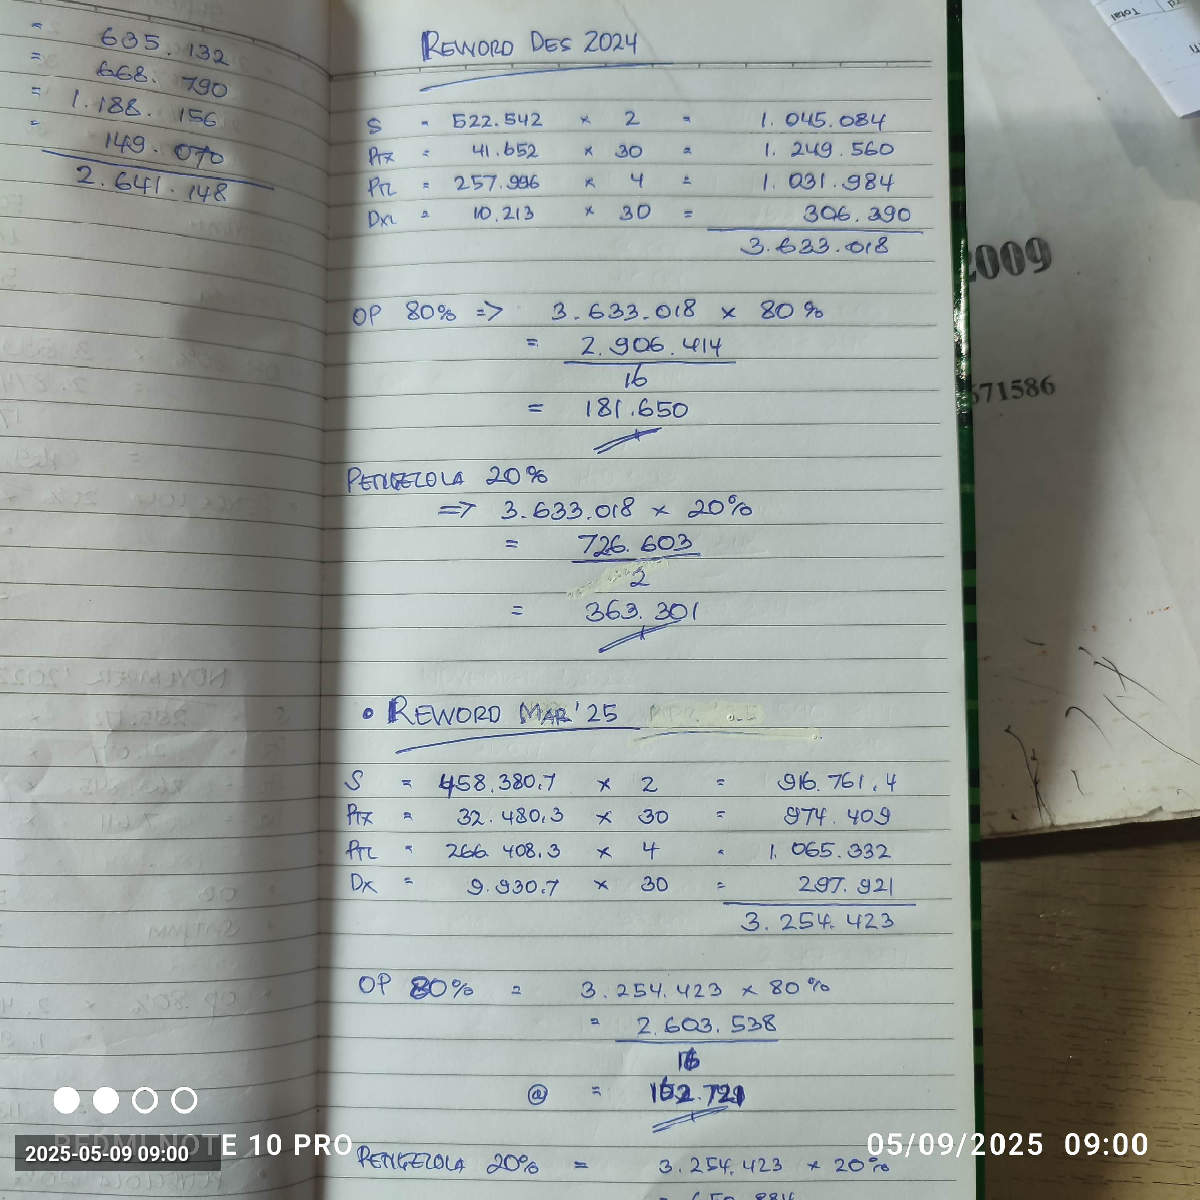 = 635.132
= 668.790
= 1.188.156
= 149.070
2.641.148
REWORD DES 2024
S = 522.542 x 2 = 1.045.084
PTX = 41.652 x 30 = 1.249.560
PTL = 257.996 x 4 = 1.031.984
DXL = 10.213 x 30 = 306.390
3.633.018
OP 80% => 3.633.018 x 80%
= 2.906.414
16
= 181.650
PENGELOLA 20%
=> 3.633.018 x 20%
= 726.603
2
= 363.301
• REWORD MAR '25
S = 458.380,7 x 2 = 916.761,4
PTX = 32.480,3 x 30 = 974.409
PTL = 266.408,3 x 4 = 1.065.332
DX = 9.930,7 x 30 = 297.921
3.254.423
OP 80% = 3.254.423 x 80%
= 2.603.538
16
@ = 162.721
PENGELOLA 20% = 3.254.423 x 20%
Total
2009
571586
REDMI NOTE 10 PRO
2025-05-09 09:00
05/09/2025 09:00